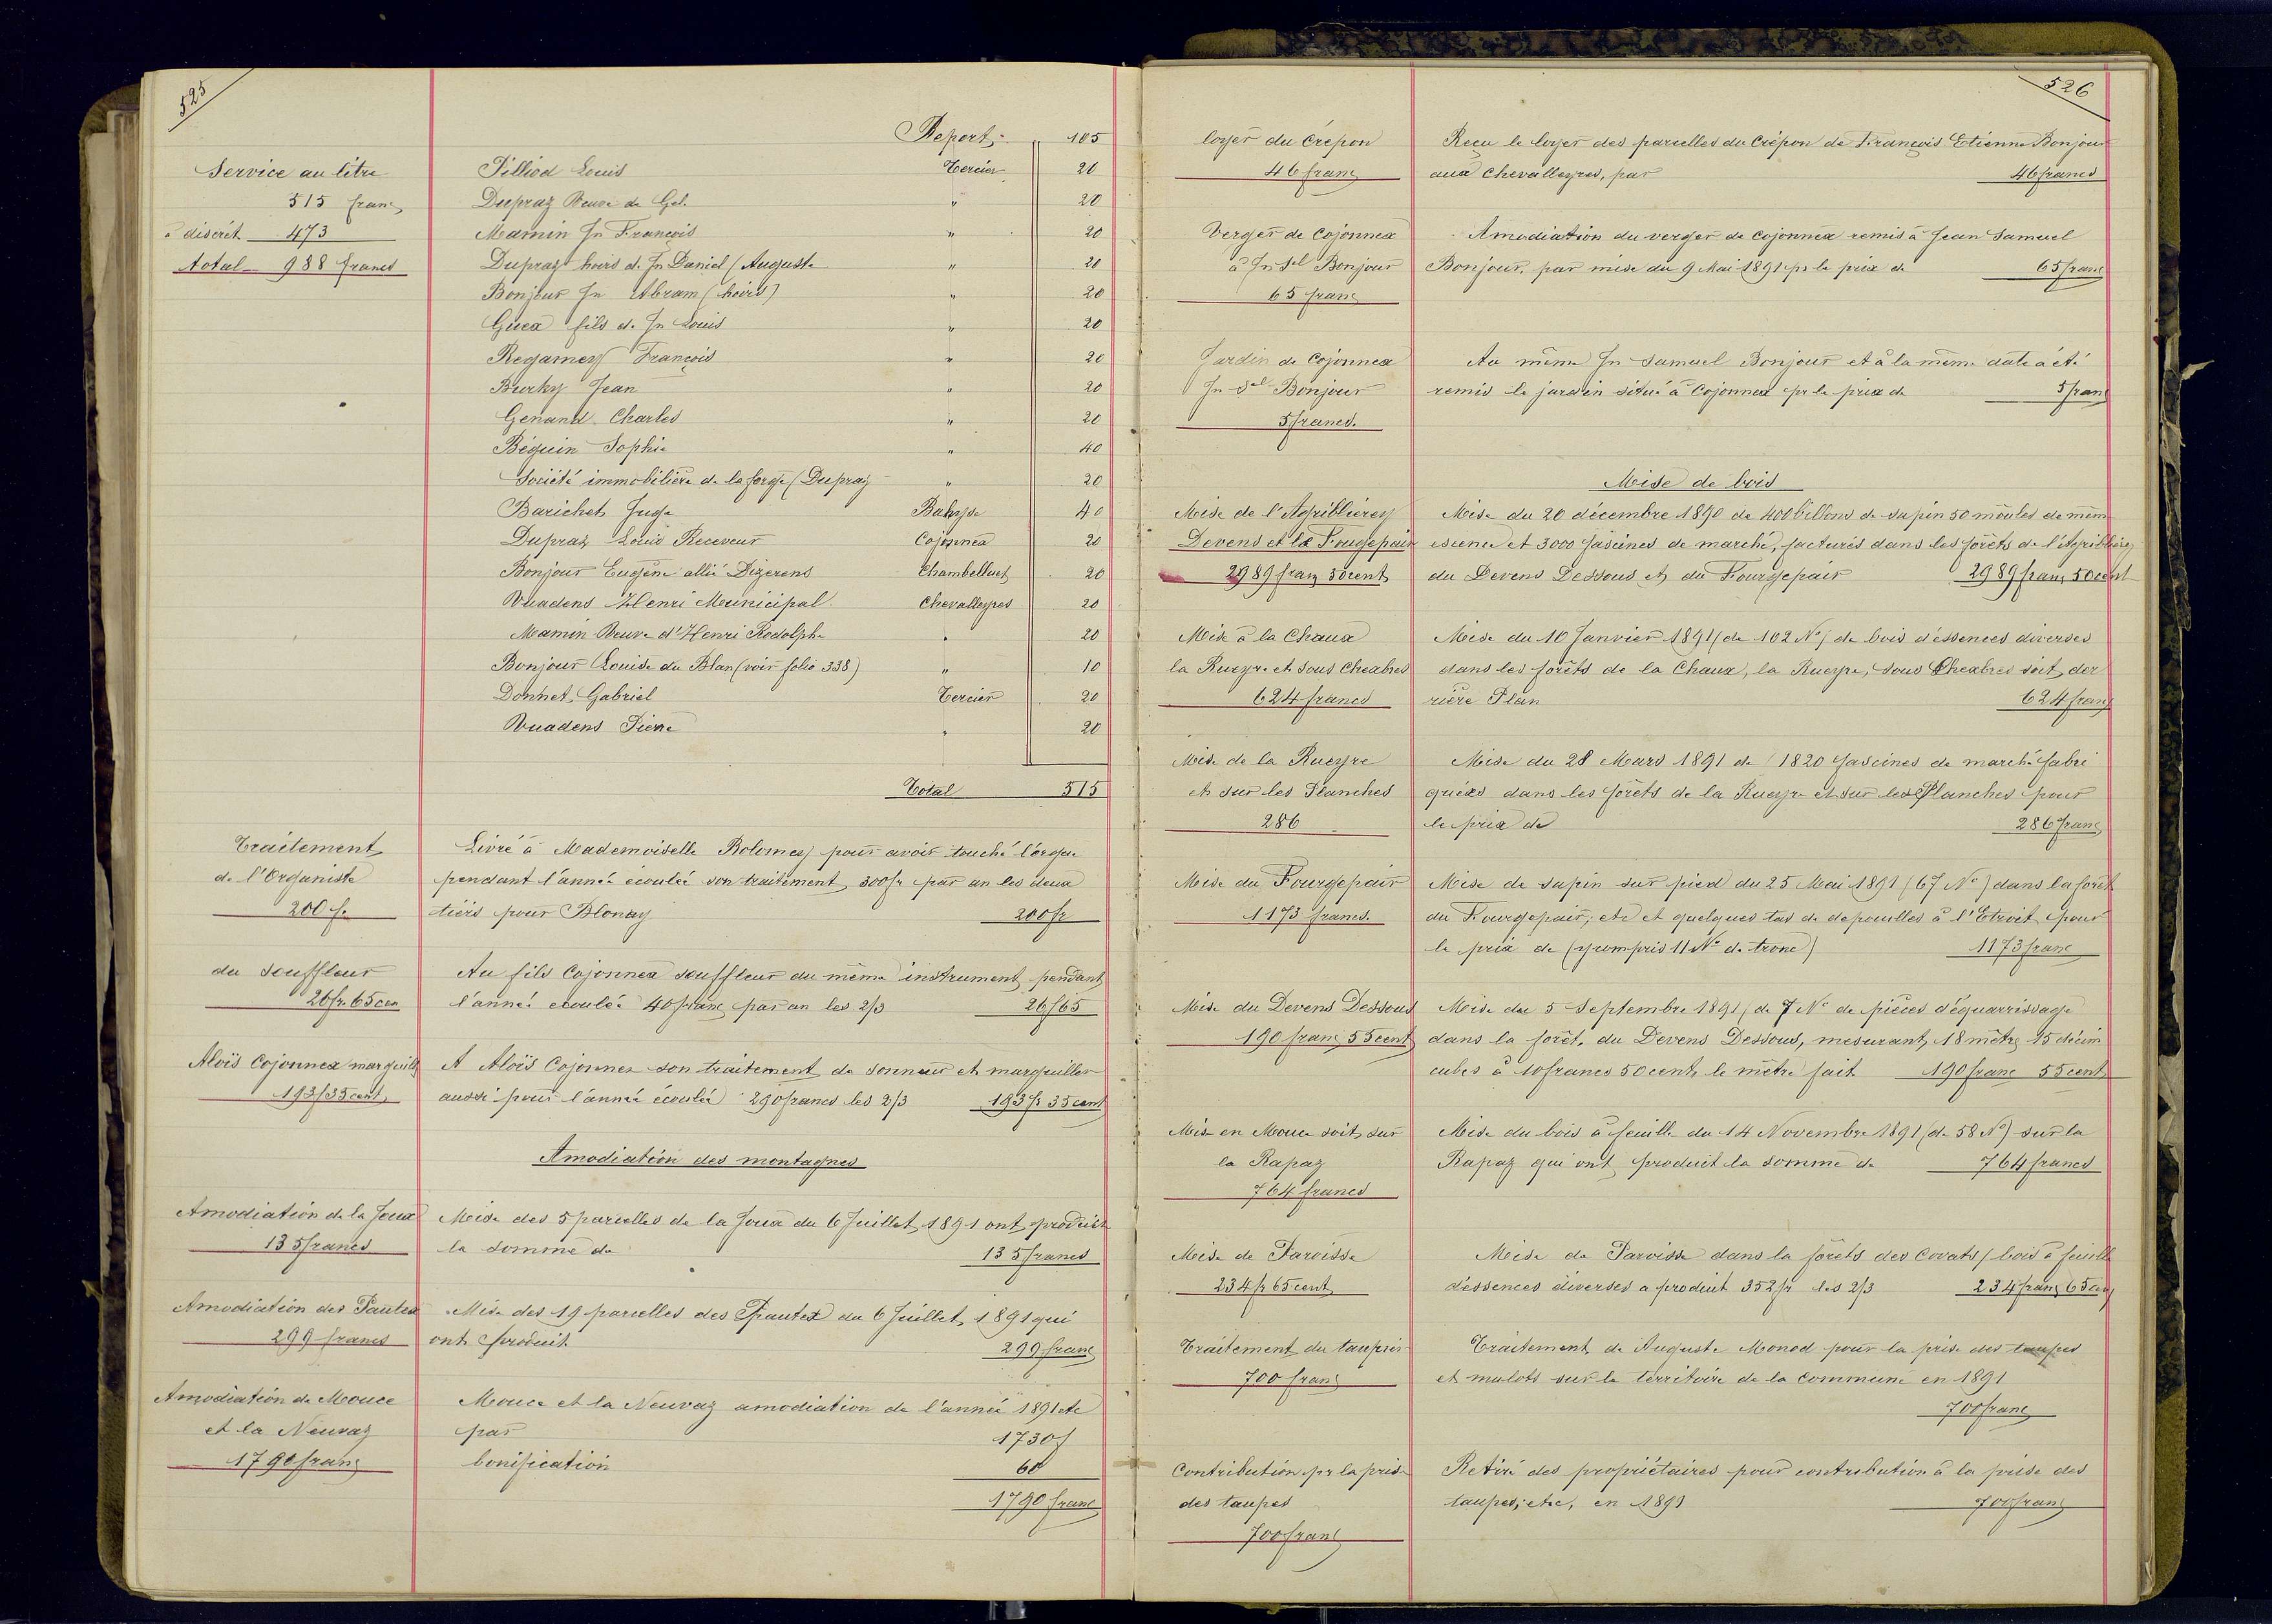 525
Report 105
Service au litre
515 franc
à discrét 473
total 988 francs
Pilliod Louis Tercier 20
Dupraz Veuve de Gel. " 20
Mamin Jn François " 20
Dupraz hoirs d. Jn Daniel (Auguste " 20
Bonjour Jn Abram (hoirs) " 20
Guex fils d. Jn Louis " 20
Regamey François " 20
Burky Jean " 20
Genand Charles " 20
Béguin Sophie " 40
Société immobilière de la forge (Dupraz " 20
Barichet Juge Bahyse 40
Dupraz Louis Receveur Cojonnex 20
Bonjour Eugène allié Dizerens Chambelluet 20
Vuadens Henri Municipal Chevalleyres 20
Mamin Veuve d'Henri Rodolphe " 20
Bonjour Louise du Plan (voir folio 338) " 10
Donnet Gabriel Tercier 20
Vuadens Pierre " 20
Total 515
Traitement
de l'Organiste
200 f.
Livré à Mademoiselle Bolomey pour avoir touché l'orgue
pendant l'année écoulée son traitement 300 fr par an les deux
tiers pour Blonay 200 fr
du souffleur
26 fr. 65 cen
Au fils Cojonnex souffleur du même instrument pendant
l'année écoulée 40 franc par an les 2/3 26 f 65
Aloïs Cojonnex marguill
193 f 35 cent
A Aloïs Cojonnex son traitement de sonneur et marguiller
aussi pour l'année écoulée 290 francs les 2/3 193 fr 35 cent
Amodiation des montagnes
Amodiation de la Joux
135 francs
Mise des 5 parcelles de la Joux du 6 Juillet 1891 ont produit
la somme de 135 francs
Amodiation des Pautex
299 francs
Mise des 19 parcelles des Pautex du 6 Juillet 1891 qui
ont produit 299 franc
Amodiation de Mouce
et la Neuvaz
1790 franc
Mouce et la Neuvaz amodiation de l'année 1891 etc
par 1730 f
bonification 60
1790 franc
526
loyer du Crépon
46 franc
Reçu le loyer des parcelles du Crépon de François Etienne Bonjour
aux Chevalleyres, par 46 francs
Verger de Cojonnex
à Jn Sel Bonjour
65 franc
Amodiation du verger de Cojonnex remis à Jean Samuel
Bonjour, par mise du 9 Mai 1891 pr le prix de 65 franc
Jardin de Cojonnex
Jn Sel Bonjour
5 francs.
Au même Jn Samuel Bonjour et à la même date a été
remis le jardin situé à Cojonnex pr le prix de 5 franc
Mise de bois
Mise de l'Agriblierey
Devens et le Fougepair
2989 franc 50 cent
Mise du 20 décembre 1890 de 400 billons de sapin 50 moules de mêm
escence et 3000 fascines de marché, facturés dans les forêts de l'Agriblierey
du Devens Dessous et du Fourgepair 2989 franc 50 cent
Mise à la Chaux
la Rueyre et sous Chexbres
624 francs
Mise du 10 Janvier 1891 (de 102 No) de bois d'éssences diverses
dans les forêts de la Chaux, la Rueyre, sous Chexbres soit der
rière Plan 624 franc
Mise de la Rueyre
et sur les Planches
286
Mise du 28 Mars 1891 de (1820 fascines de marché fabri
quées dans les forêts de la Rueyre et sur les Planches pour
le prix de 286 franc
Mise du Fourgepair
1173 francs.
Mise de sapin sur pied du 25 Mai 1891 (67 No) dans la forêt
du Fourgepair, etc et quelques tas de depouilles à l'Etroit pour
le prix de (y compris 11 No de tronc) 1173 franc
Mise du Devens Dessous
190 franc 55 cent
Mise du 5 Septembre 1891 (de 7 No de pièces d'équarrissage
dans la forêt, du Devens Dessous, mesurant 18 mètre 15 décim
cubes à 10 francs 50 cent le mètre fait 190 franc 55 cent
Mise en Mouce soit sur
la Rapaz
764 francs
Mise du bois à feuille du 14 Novembre 1891 (de 58 No) sur la
Rapaz qui ont produit la somme de 764 francs
Mise de Paroisse
234 fr 65 cent
Mise de Paroisse dans la forêts des Covats (bois à feuille
d'éssences diverses a produit 352 fr les 2/3 234 franc 65 cen
Traitement du taupier
700 franc
Traitement de Auguste Monod pour la prise des taupes
et mulots sur le territoire de la commune en 1891
700 franc
Contribution pr la prise
des taupes
700 franc
Retiré des propriétaires pour contribution à la prise des
taupes, etc, en 1891 700 franc